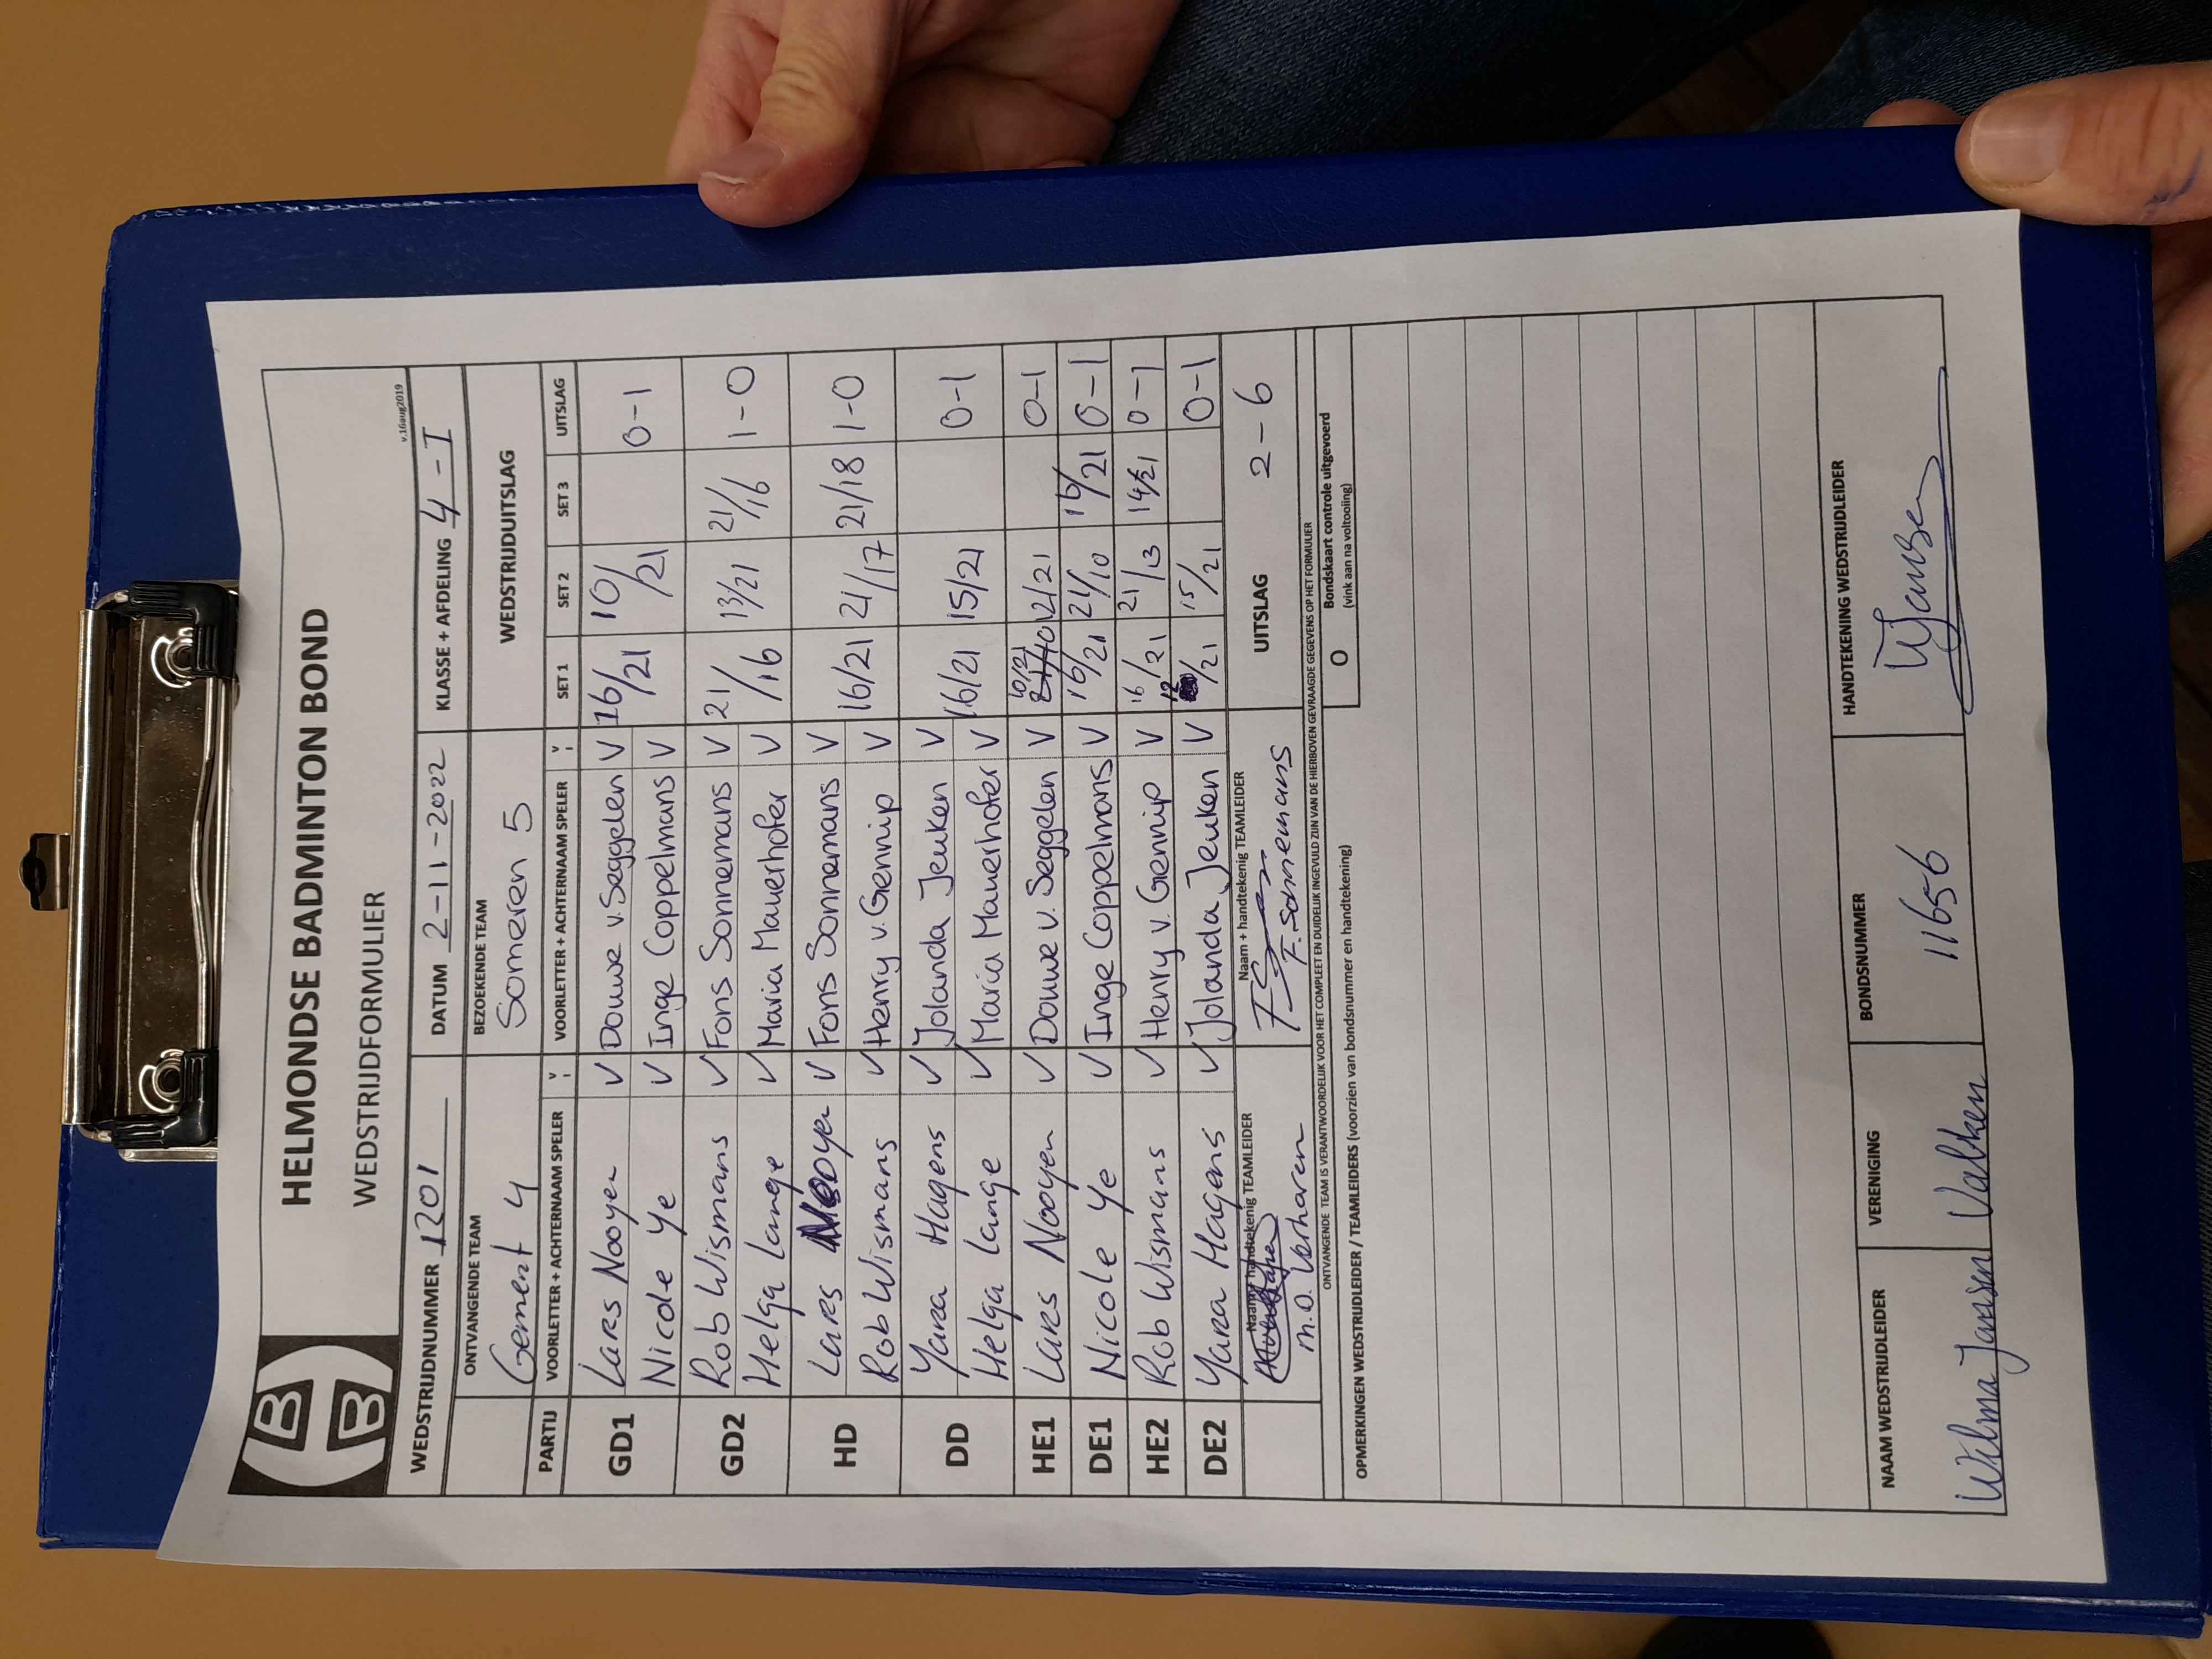 HELMONDSE BADMINTON BOND
WEDSTRIJDFORMULIER
v.16aug2019
WEDSTRIJDNUMMER 1201 DATUM 2-11-2022 KLASSE + AFDELING 4 - I
ONTVANGENDE TEAM BEZOEKENDE TEAM WEDSTRIJDUITSLAG
Gemert 4 Someren 5
PARTIJ VOORLETTER + ACHTERNAAM SPELER V VOORLETTER + ACHTERNAAM SPELER V SET 1 SET 2 SET 3 UITSLAG
GD1 Lars Nooyen V Douwe v. Seggelen V 16/21 10/21 0-1
Nicole Ye V Inge Coppelmans V
GD2 Rob Wismans V Fons Sonnemans V 21/16 13/21 21/16 1-0
Helga Lange V Maria Mauerhofer V
HD Lars Nooyen V Fons Sonnemans V 16/21 21/17 21/18 1-0
Rob Wismans V Henry v. Gennip V
DD Yara Hagens V Jolanda Jeuken V 16/21 15/21 0-1
Helga Lange V Maria Mauerhofer V
HE1 Lars Nooyen V Douwe v. Seggelen V 12/21 0-1
DE1 Nicole Ye V Inge Coppelmans V 16/21 21/10 16/21 0-1
HE2 Rob Wismans V Henry v. Gennip V 16/21 21/13 14/21 0-1
DE2 Yara Hagens V Jolanda Jeuken V 12/21 15/21 0-1
Naam + handtekenig TEAMLEIDER Naam + handtekenig TEAMLEIDER UITSLAG 2-6
M.O. Verharen F. Sonnemans
ONTVANGENDE TEAM IS VERANTWOORDELIJK VOOR HET COMPLEET EN DUIDELIJK INGEVULD ZIJN VAN DE HIERBOVEN GEVRAAGDE GEGEVENS OP HET FORMULIER
O Bondskaart controle uitgevoerd
(vink aan na voltooiing)
OPMERKINGEN WEDSTRIJDLEIDER / TEAMLEIDERS (voorzien van bondsnummer en handtekening)
NAAM WEDSTRIJDLEIDER VERENIGING BONDSNUMMER HANDTEKENING WEDSTRIJDLEIDER
Wilma Jansen Valken 11656